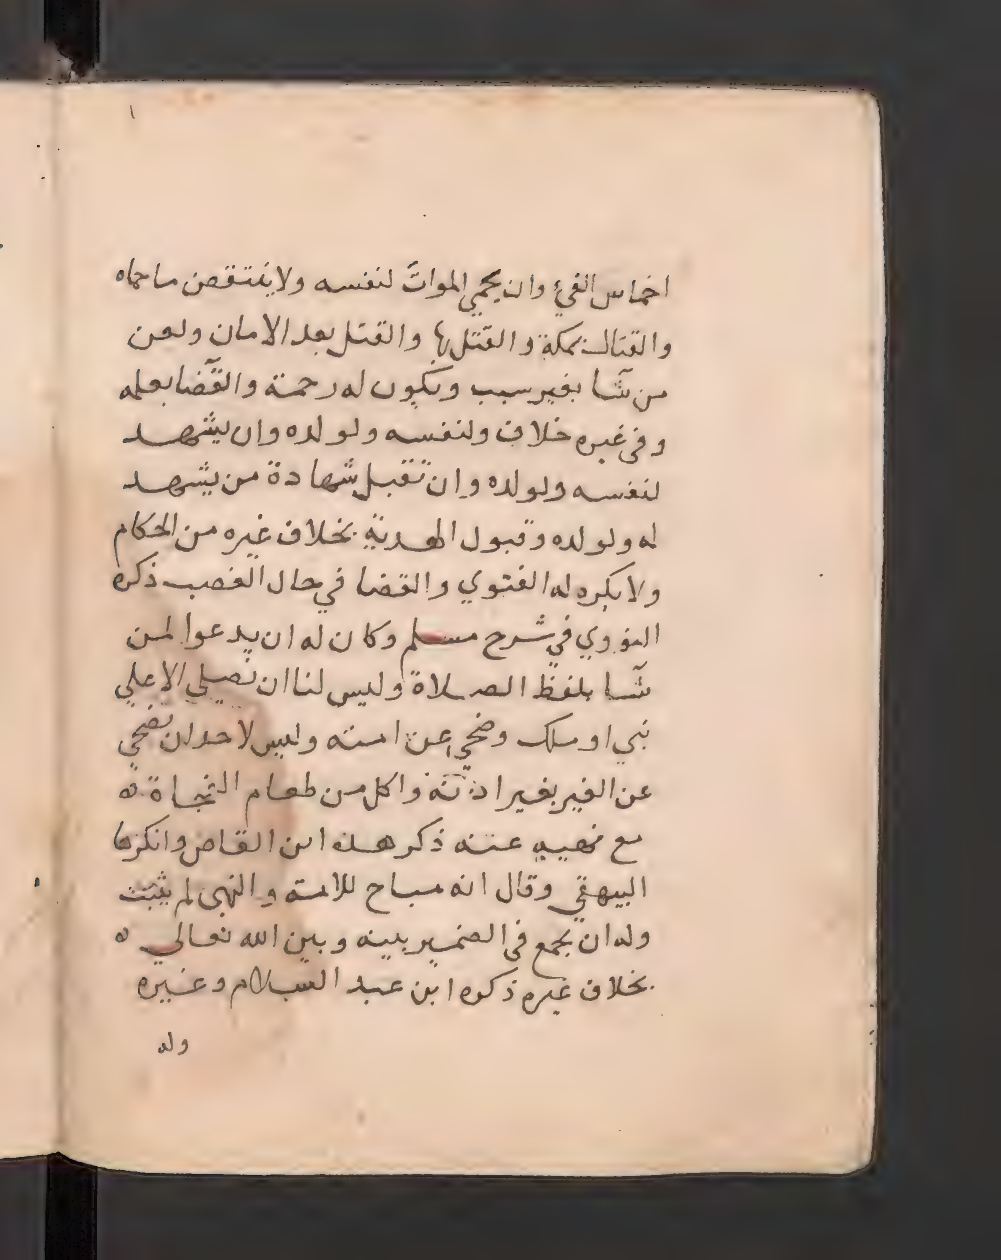 ١
اخماس الفيء وان يحمي الموات لنفسه ولا ينتقض ما حماه
والقتال بمكة والقتل بها والقتل بعد الامان ولعن
من شآ بغير سبب ويكون له رحمة والقضا بعلمه
وفي غيره خلاف ولنفسه ولولده وان يشهد
لنفسه ولولده وان تقبل شهادة من يشهد
له ولولده وقبول الهدية بخلاف غيره من الحكام
ولا يكره له الفتوي والقضا في حال الغضب ذكره
النووي في شرح مسلم وكان له ان يدعوا لمن
شآ بلفظ الصلاة وليس لنا ان نصلي الا علي
نبي او ملك وضحي عن امته وليس لاحد ان يضحي
عن الغير بغير اذنه واكل من طعام الفجاة
مع نهيه عنه ذكر هذه ابن القاص وانكرها
البيهقي وقال انه مباح للامة والنهي لم يثبت
وله ان يجمع في الضمير بينه وبين الله تعالي
بخلاف غيره ذكره ابن عبد السلام وغيره
وله